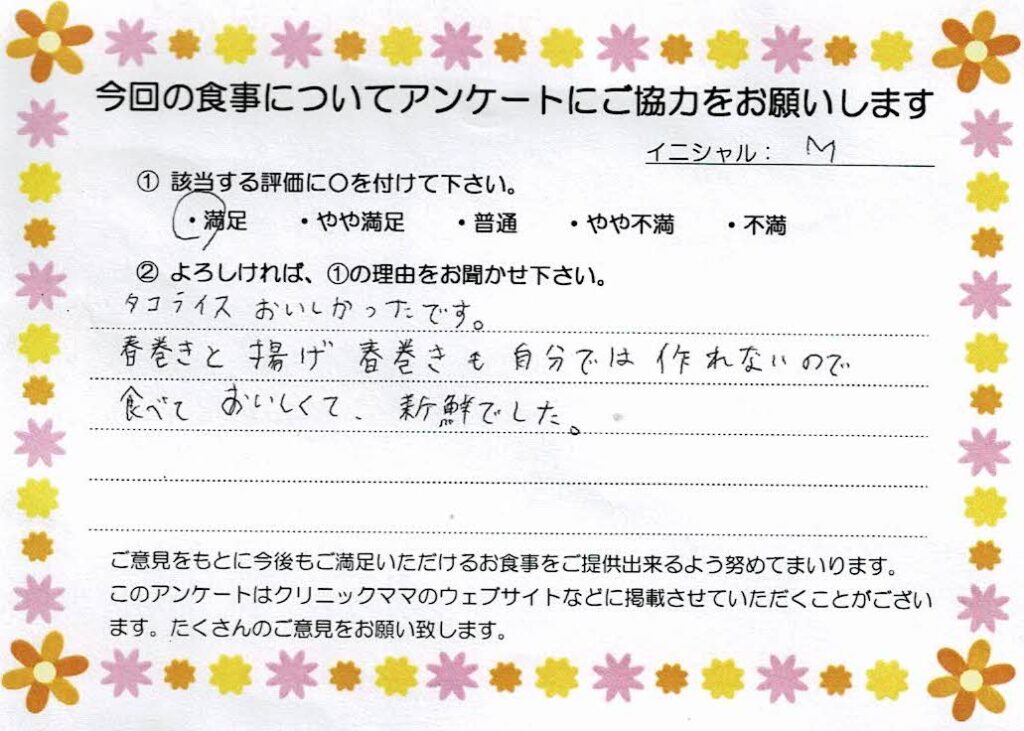 今回の食事についてアンケートにご協力をお願いします
イニシャル： M
① 該当する評価に〇を付けて下さい。
・満足 ・やや満足 ・普通 ・やや不満 ・不満
② よろしければ、①の理由をお聞かせ下さい。
タコライス おいしかったです。
春巻きと 揚げ 春巻きも 自分では 作れないので
食べて おいしくて、 新鮮でした。
ご意見をもとに今後もご満足いただけるお食事をご提供出来るよう努めてまいります。
このアンケートはクリニックママのウェブサイトなどに掲載させていただくことがござい
ます。たくさんのご意見をお願い致します。